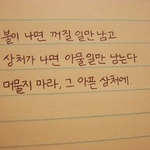 불이 나면 꺼질 일만 남고
상처가 나면 아물 일만 남는다
머물지 마라, 그 아픈 상처에